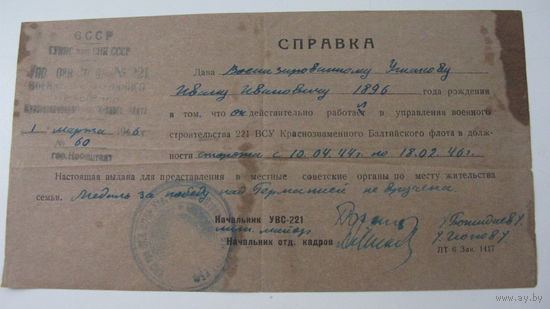 СССР
№ 221
СПРАВКА
Дана Военизированному Ушакову
Ивану Ивановичу 1896 года рождения
1 марта 1946 г.
в том, что он действительно работал в управлении военного
№ 60
строительства 221 ВСУ Краснознаменного Балтийского флота в долж-
гор. Кронштадт
ности сторожа с 10.04.44г по 18.02.46г.
Настоящая выдана для представления в местные советские органы по месту жительства
семьи. Медаль за победу над Германией не вручена.
Начальник УВС-221
майор
Начальник отд. кадров
ЛТ 6 Зак. 1417
www.ay.by